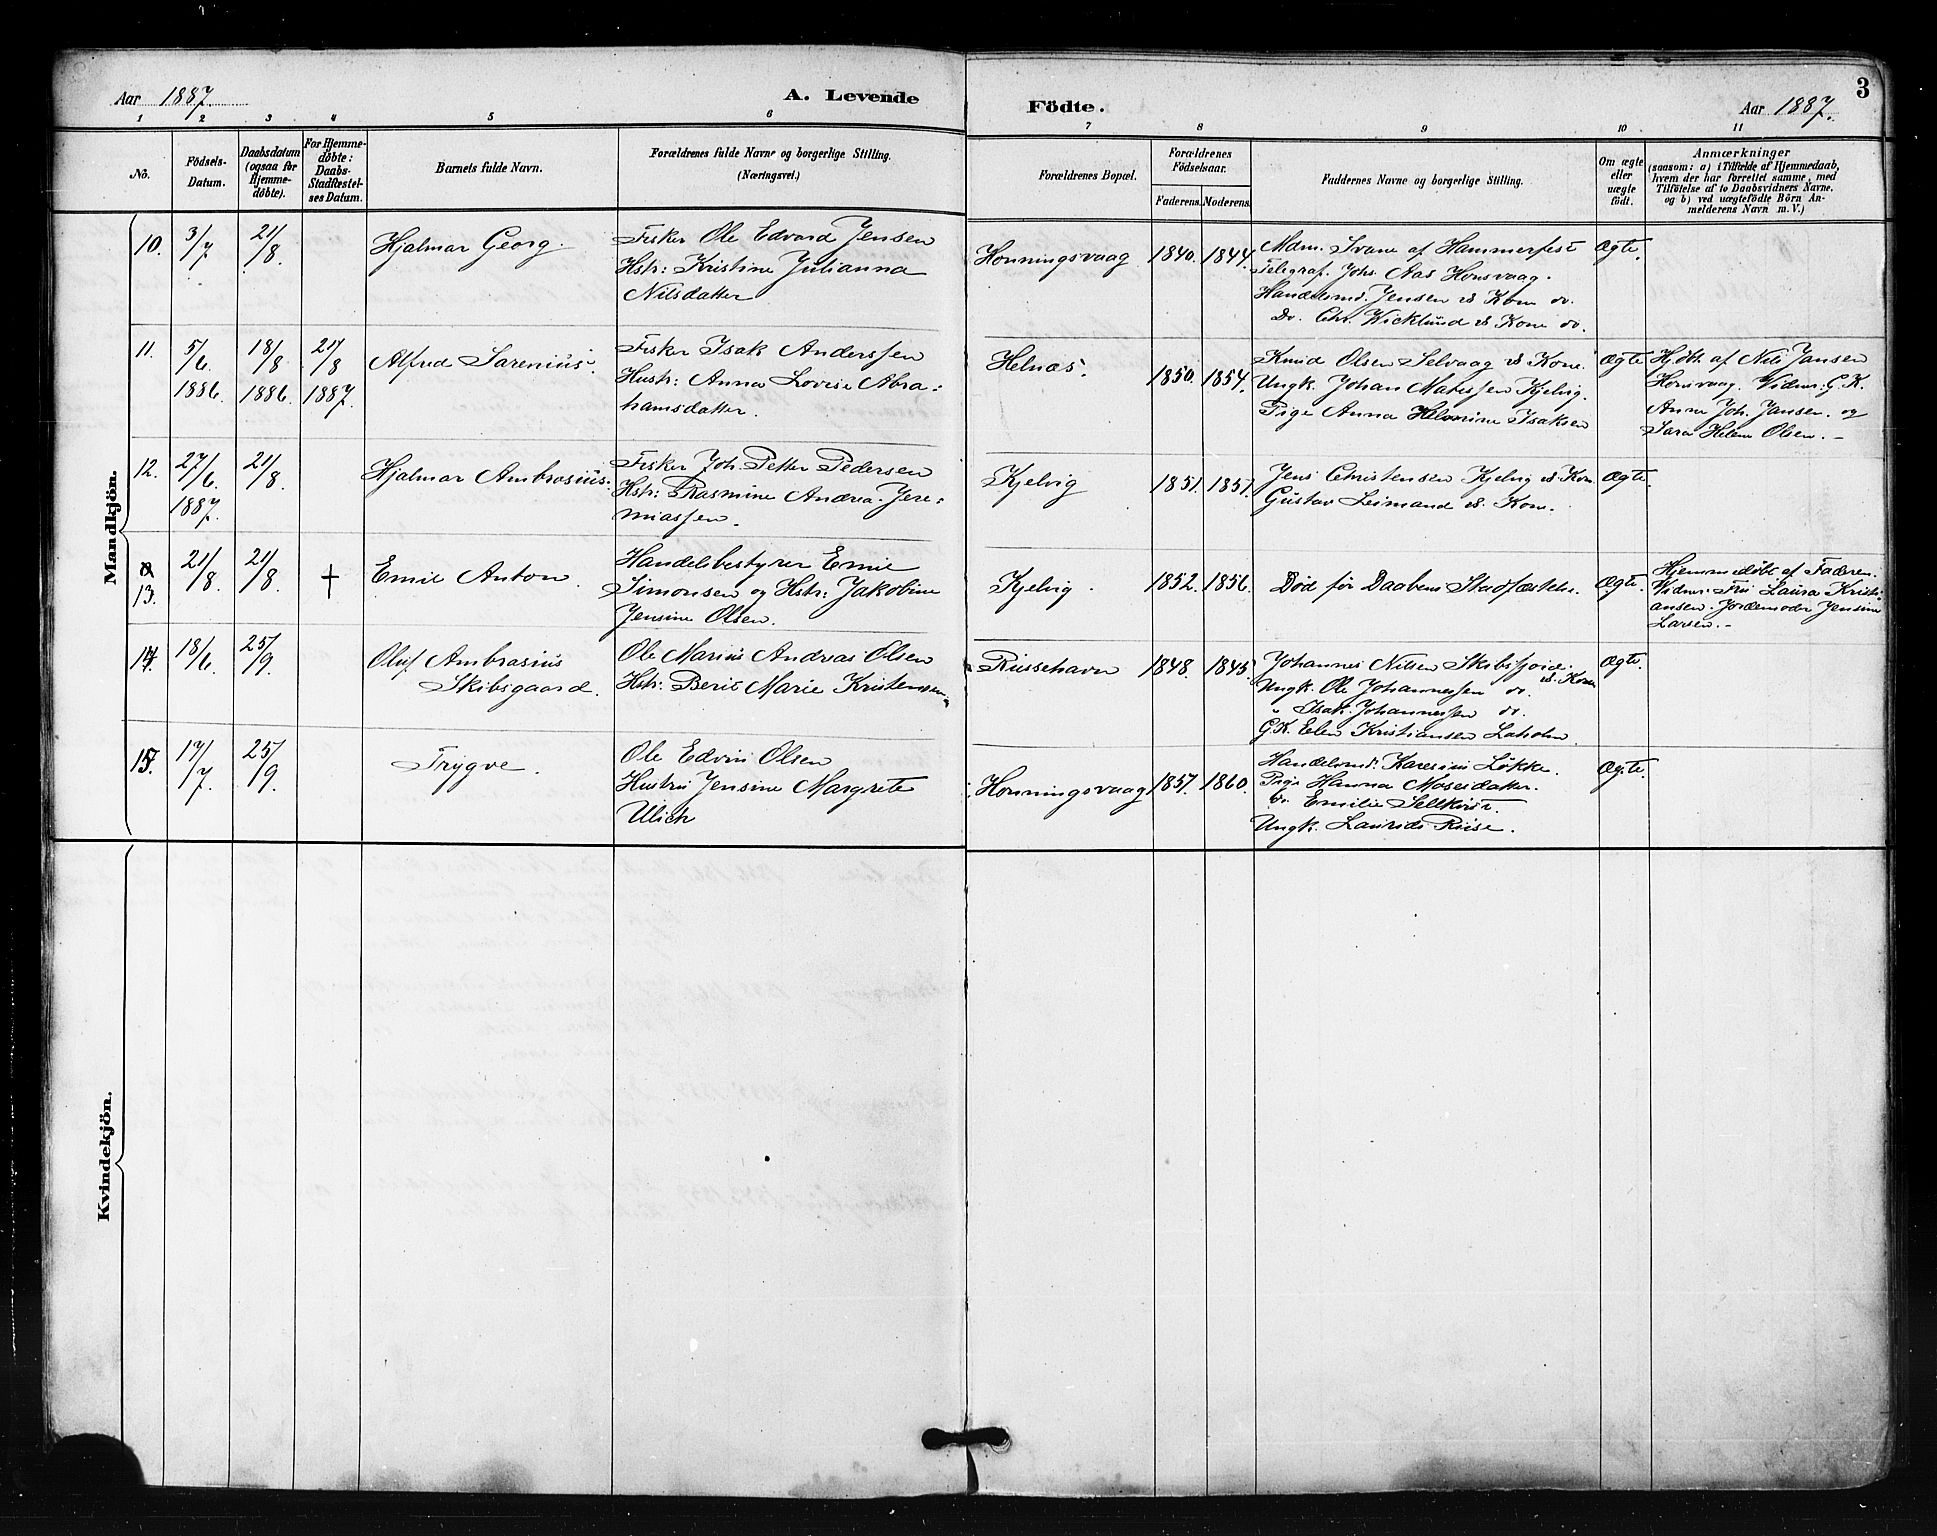 Aar 1887. A. Levende Födte. Aar 1887. 3
1 2 3 4 5 6 7 8 9 10 11
No.
Födsels-
Datum.
Daabsdatum
(ogsaa for
Hjemme-
döbte).
For Hjemme-
döbte:
Daabs-
Stadfæstel-
ses Datum.
Barnets fulde Navn.
Forældrenes fulde Navne og borgerlige Stilling.
(Næringsvei.)
Forældrenes Bopæl.
Forældrenes
Födselsaar.
Faderens. Moderens.
Faddernes Navne og borgerlige Stilling.
Om ægte
eller
uægte
födt.
Anmærkninger
(saasom: a) i Tilfælde af Hjemmedaab,
hvem der har forrettet samme, med
Tilföielse af to Daabsvidners Navne.
og b) ved uægtefödte Börn An-
melderens Navn m. V.)
Mandkjön.
10. 3/7 21/8. Hjalmar Georg.
Fisker Ole Edvard Jensen
Hstr: Kristine Julianna
Nilsdatter
Honningsvaag 1840. 1844.
Mdm. Svane af Hammerfest
Telegraf. Johs. Aas Honsvaag.
Handelsmd. Jensen & Kone do.
Do. Chr. Wicklund & Kone do.
Ægte.
11. 5/6 1886. 18/8 1886. 21/8 1887. Alfred Sarenius.
Fisker Isak Anderssen
Hustr: Anna Lovise Abra:
hamsdatter.
Helnæs. 1850. 1854.
Knud Olsen Selvaag & Kone.
Ungk. Johan Matissen Kjelvig.
Pige Anna Helmine Isaksen
Ægte
Hjdbt. af Nils Jansen
Honsvaag. Vidner: G.K.
Anne Joh. Jansen. og
Sara Helene Olsen.
12. 27/6. 1887. 21/8. Hjalmar Ambrosius:
Fisker Joh. Petter Pedersen
Hstr: Rasmine Andrea Jere:
miassen.
Kjelvig 1851. 1857.
Jens Christensen Kjelvig & Kone.
Gustav Leimand & Kone.
Ægte.
13. 21/8. 21/8. + Emil Anton.
Handelsbestyrer Emil
Simonsen og Hstr: Jakobine
Jensine Olsen.
Kjelvig. 1852. 1856.
Død før Daabens Stadfæstelse.
Ægte.
Hjemmedøbt af Faderen.
Vidner: Fru Laura Kristi-
ansen. Jordemoder Jensine
Larsen.
14. 18/6. 25/9. Oluf Ambrosius
Skibsgaard.
Ole Marius Andreas Olsen
Hstr: Berit Marie Kristensen
Russehavn 1848. 1845.
Johannes Nilsen Skibsfjord & Kone
Ungk. Ole Johannessen do.
" Isak Johannessen do.
G.K. Elen Kristiansen Laholm.
Ægte.
15. 17/7. 25/9. Trygve.
Ole Edvin Olsen
Hustru Jensine Margrete
Ulich
Honningsvaag 1857. 1860.
Handelsmd. Karesius Løkke.
Pige Hanna Mosesdatter.
do. Emilie Sellkvist.
Ungk. Laurids Riise.
Ægte.
Kvindekjön.